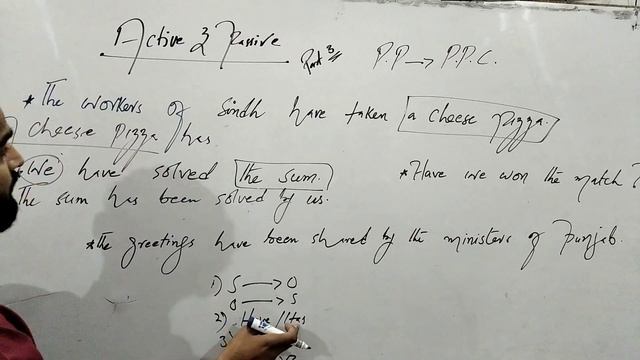 Active & Passive Part 3 P.P → P.P.C.
* The workers of Sindh have taken a cheese pizza.
cheese pizza has
We have solved the sum. * Have we won the match ?
The sum has been solved by us.
* The greetings have been shared by the ministers of Punjab.
1) S → O
O → S
2) Have / Has
3)